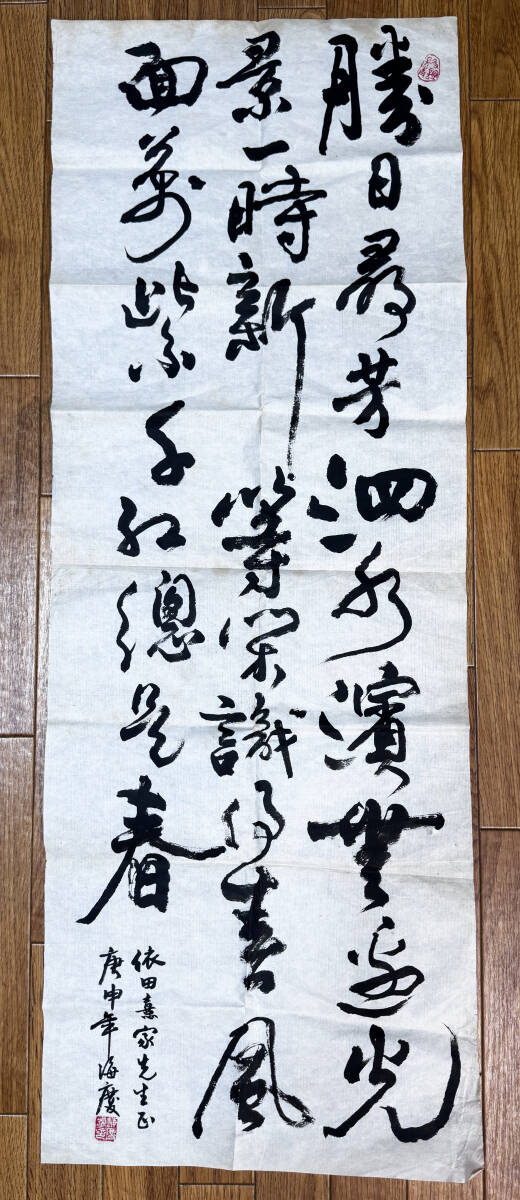 勝日尋芳泗水濱無邊光
景一時新等閑識得春風
面萬紫千紅總是春
依田熹家先生正
庚申年海慶